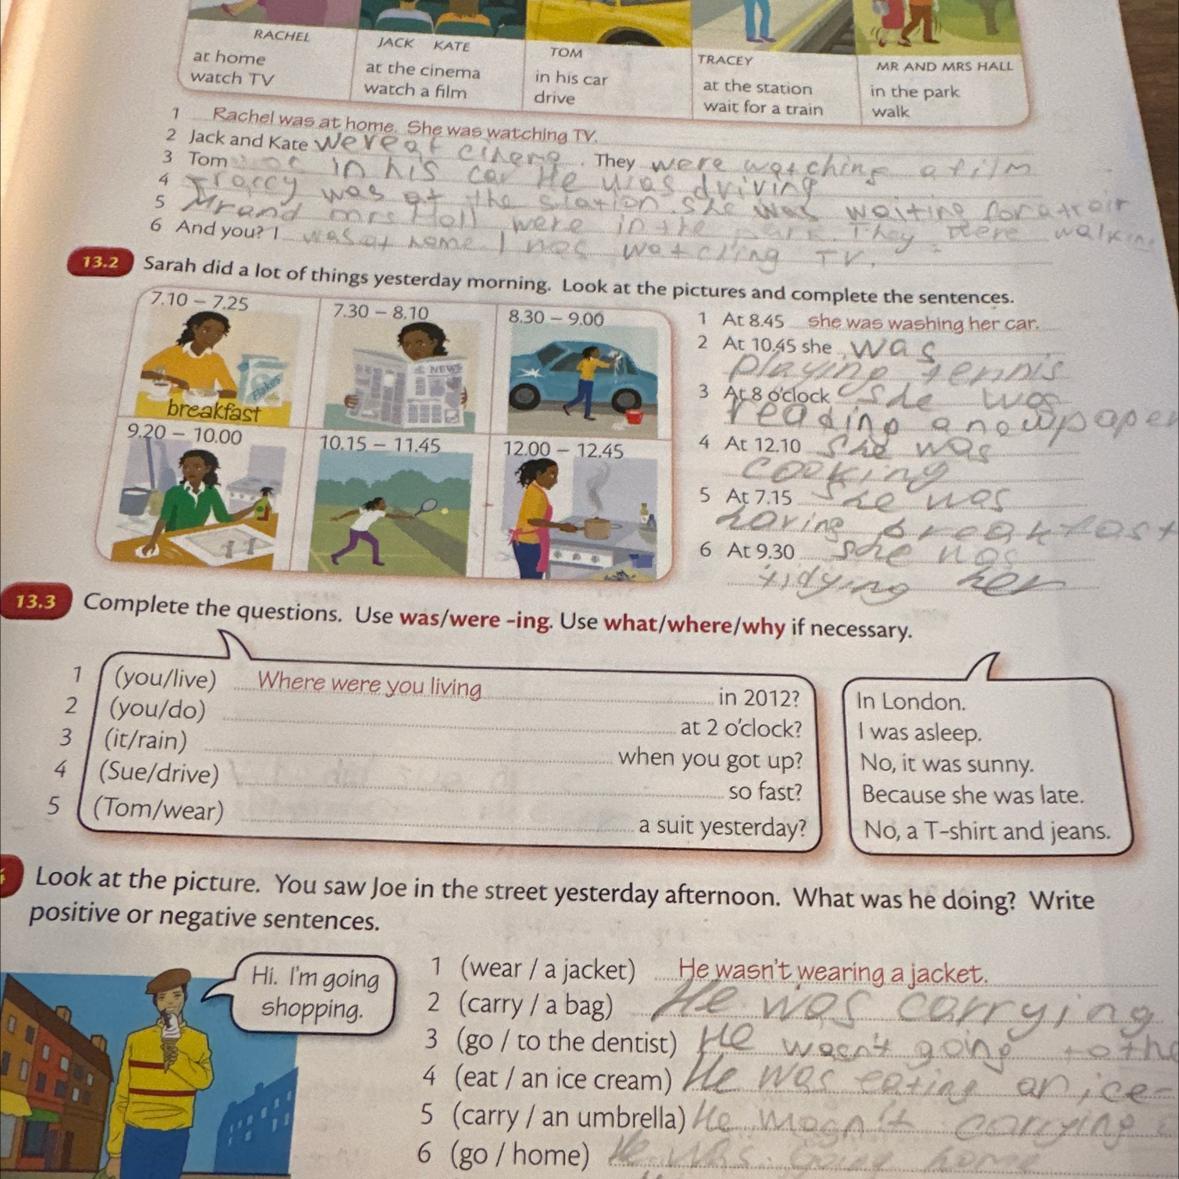 RACHEL
at home
watch TV
JACK KATE
at the cinema
watch a film
TOM
in his car
drive
TRACEY
at the station
wait for a train
MR AND MRS HALL
in the park
walk
1 Rachel was at home. She was watching TV.
2 Jack and Kate were at cinema . They were watching a film
3 Tom was in his car He was driving
4 Traccy was at the station. she was waiting for a train
5 Mr and mrs Hall were in the park. They were walking
6 And you? I was at home I was watching TV.
13.2 Sarah did a lot of things yesterday morning. Look at the pictures and complete the sentences.
7.10 – 7.25
breakfast
7.30 – 8.10
NEWS
8.30 – 9.00
9.20 – 10.00
10.15 – 11.45
12.00 – 12.45
1 At 8.45 she was washing her car.
2 At 10.45 she was
playing tennis
3 At 8 o'clock she was
reading a newpaper
4 At 12.10 she was
cooking
5 At 7.15 she was
having breakfast
6 At 9.30 she was
tidying her
13.3 Complete the questions. Use was/were -ing. Use what/where/why if necessary.
1 (you/live) Where were you living in 2012?
2 (you/do) at 2 o'clock?
3 (it/rain) when you got up?
4 (Sue/drive) so fast?
5 (Tom/wear) a suit yesterday?
In London.
I was asleep.
No, it was sunny.
Because she was late.
No, a T-shirt and jeans.
Look at the picture. You saw Joe in the street yesterday afternoon. What was he doing? Write
positive or negative sentences.
Hi. I'm going
shopping.
1 (wear / a jacket) He wasn't wearing a jacket.
2 (carry / a bag) He was carrying
3 (go / to the dentist) He wasn't going to the
4 (eat / an ice cream) He was eating an ice-
5 (carry / an umbrella) He wasn't carrying
6 (go / home) He was going home